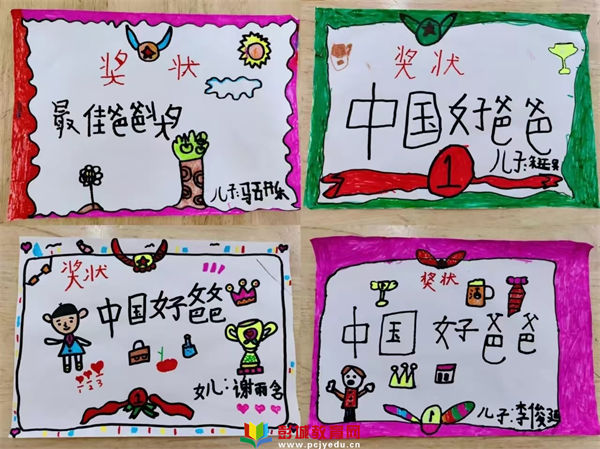 奖状
最佳爸爸奖
儿子:马
奖状
中国好爸爸
1
儿子:
奖状
中国好爸爸
1 2 3
1
女儿:谢雨含
奖状
酒
中国好爸爸
1
儿子:李俊
彭城教育网
www.pcjyedu.cn